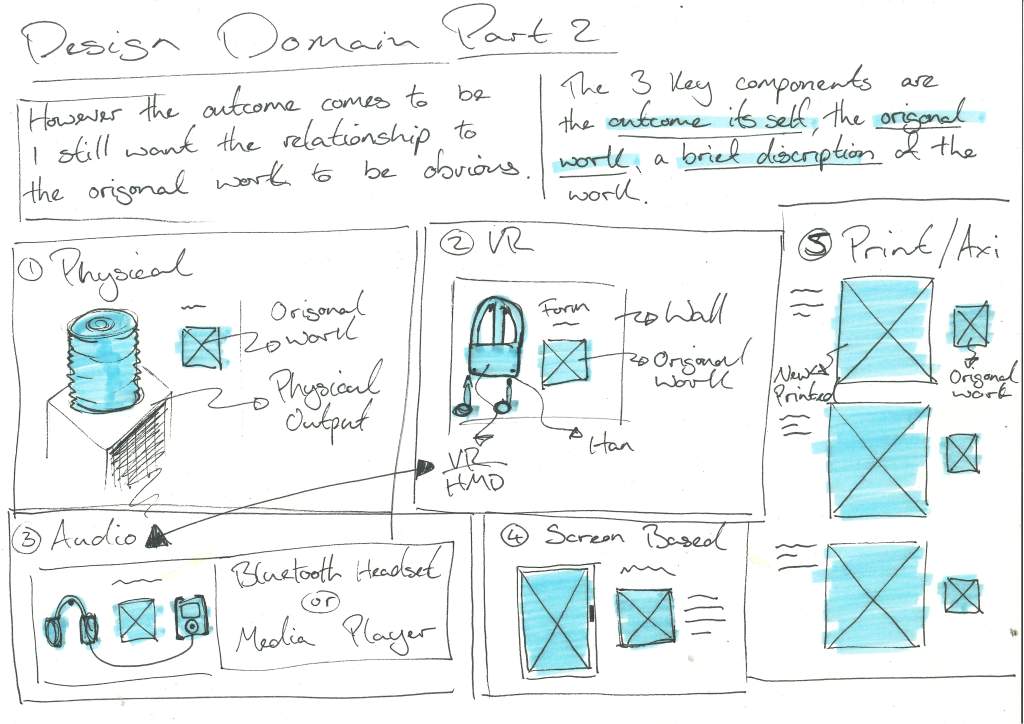 Design Domain Part 2
However the outcome comes to be
I still want the relationship to
the origonal work to be obvious.
The 3 Key components are
the outcome its self, the origonal
work, a brief discription of the
work.
① Physical
Origonal
work
Physical
Output
② VR
Form
Wall
Origonal
work
Han
VR
HMD
③ Audio
Bluetooth Headset
or
Media Player
④ Screen Based
⑤ Print/Axi
New
Printed
Origonal
work